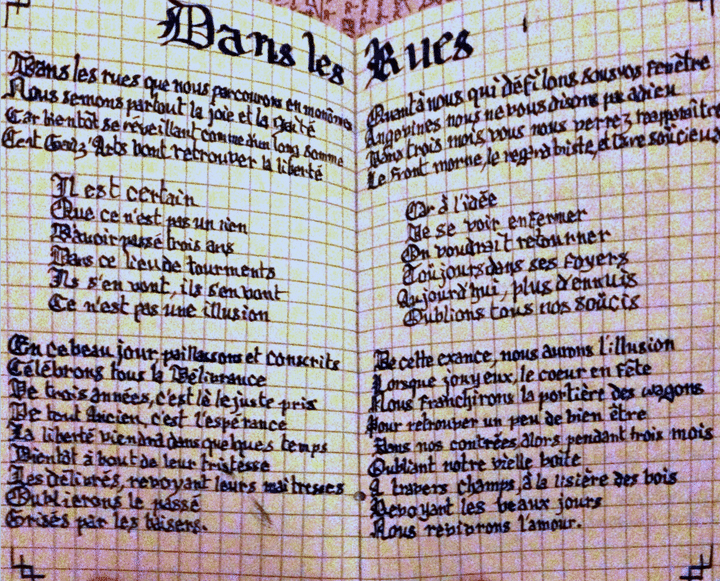 Dans les Rues
Dans les rues que nous parcourons en monômes
Nous semons partout la joie et la gaîté
Car bientôt se réveillant comme d'un long somme
Cent Gadz'Arts vont retrouver la liberté
Il est certain
Que ce n'est pas un rien
D'avoir passé trois ans
Dans ce lieu de tourments
Ils s'en vont, ils s'en vont
Ce n'est pas une illusion
En ce beau jour, paillassons et conscrits
Célébrons tous la Délivrance
De trois années, c'est là le juste prix
De tout Ancien, c'est l'espérance
La liberté viendra dans quelques temps
Bientôt à bout de leur tristesse
Les délivrés, revoyant leurs maîtresses
Oublierons le passé
Grisés par les baisers.
Quant à nous qui défilons sous vos fenêtre
Angevines nous ne vous disons pas adieu
Dans trois mois vous nous verrez réapparaître
Le front morne, le regard triste, et l'air soucieux
Car à l'idée
De se voir enfermer
On voudrait retourner
Toujours dans ses foyers
Aujourd'hui, plus d'ennuis
Oublions tous nos soucis
De cette exance, nous aurons l'illusion
Lorsque joyeux, le coeur en fête
Nous franchirons la portière des wagons
Pour retrouver un peu de bien être
Dans nos contrées alors pendant trois mois
Oubliant notre vielle boite
A travers champs, à la lisière des bois
Revoyant les beaux jours
Nous revivrons l'amour.